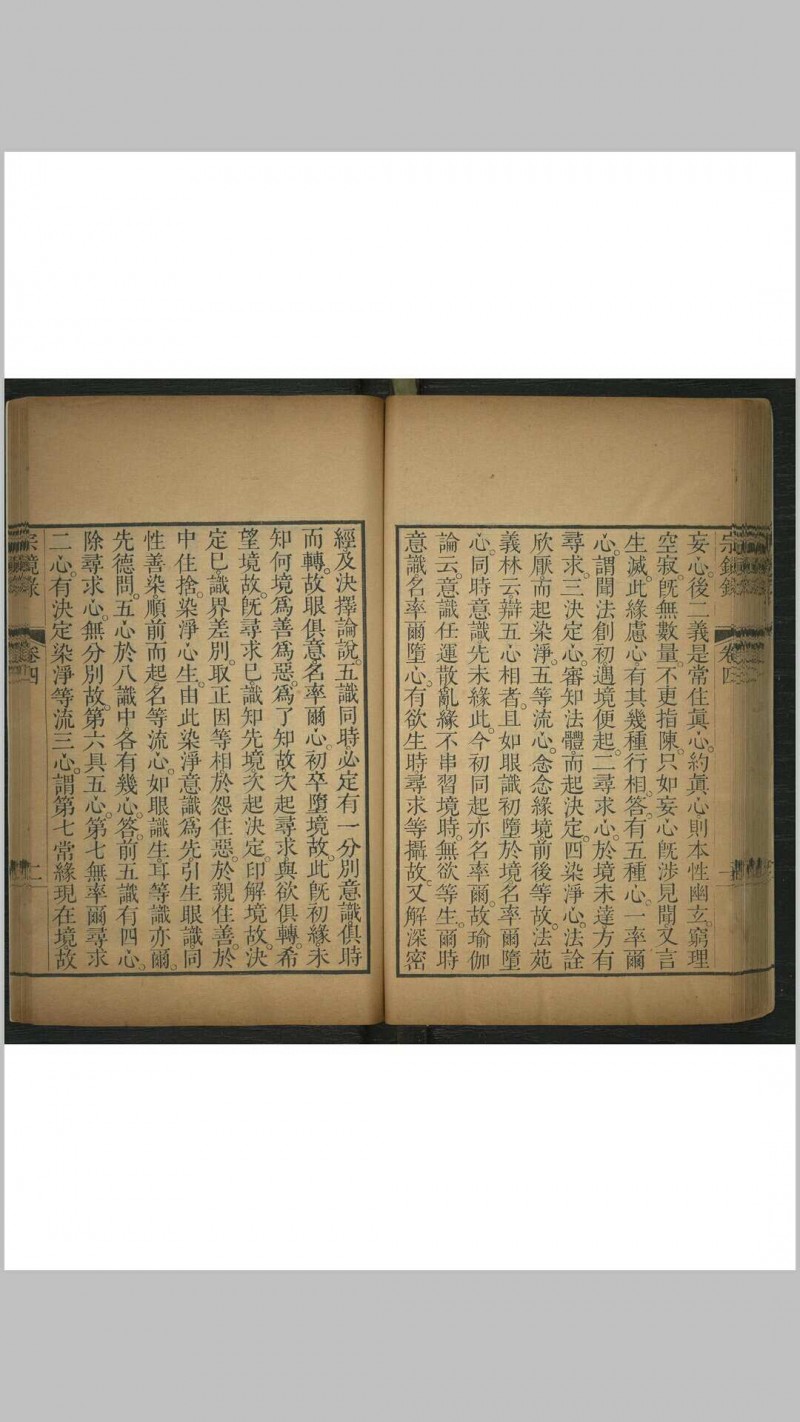 宗鏡錄
卷四
一
妄心。後二義是常住眞心。約眞心則本性幽玄。窮理
空寂。旣無數量。不更指陳。只如妄心旣涉見聞又言
生滅。此緣慮心有其幾種行相。答。有五種心。一率爾
心。謂聞法創初遇境便起。二尋求心。於境未達方有
尋求。三決定心。審知法體而起決定。四染淨心。法詮
欣厭而起染淨。五等流心。念念緣境前後等故。法苑
義林云辯五心相者。且如眼識初墮於境名率爾墮
心。同時意識先未緣此。今初同起亦名率爾。故瑜伽
論云。意識任運散亂緣不串習境時。無欲等生。爾時
意識名率爾墮心。有欲生時尋求等攝故。又解深密
經及決擇論說。五識同時必定有一分別意識俱時
而轉。故眼俱意名率爾心。初卒墮境故。此旣初緣未
知何境爲善爲惡。爲了知故次起尋求與欲俱轉。希
望境故。旣尋求巳識知先境次起決定。印解境故。決
定巳識界差別。取正因等相於怨住惡。於親住善。於
中住捨。染淨心生。由此染淨意識爲先引生眼識同
性善染順前而起名等流心。如眼識生耳等識亦爾。
先德問。五心於八識中各有幾心。答。前五識有四心。
除尋求心。無分別故。第六具五心。第七無率爾尋求
二心。有決定染淨等流三心。謂第七常緣現在境故
宗鏡錄
卷四
二